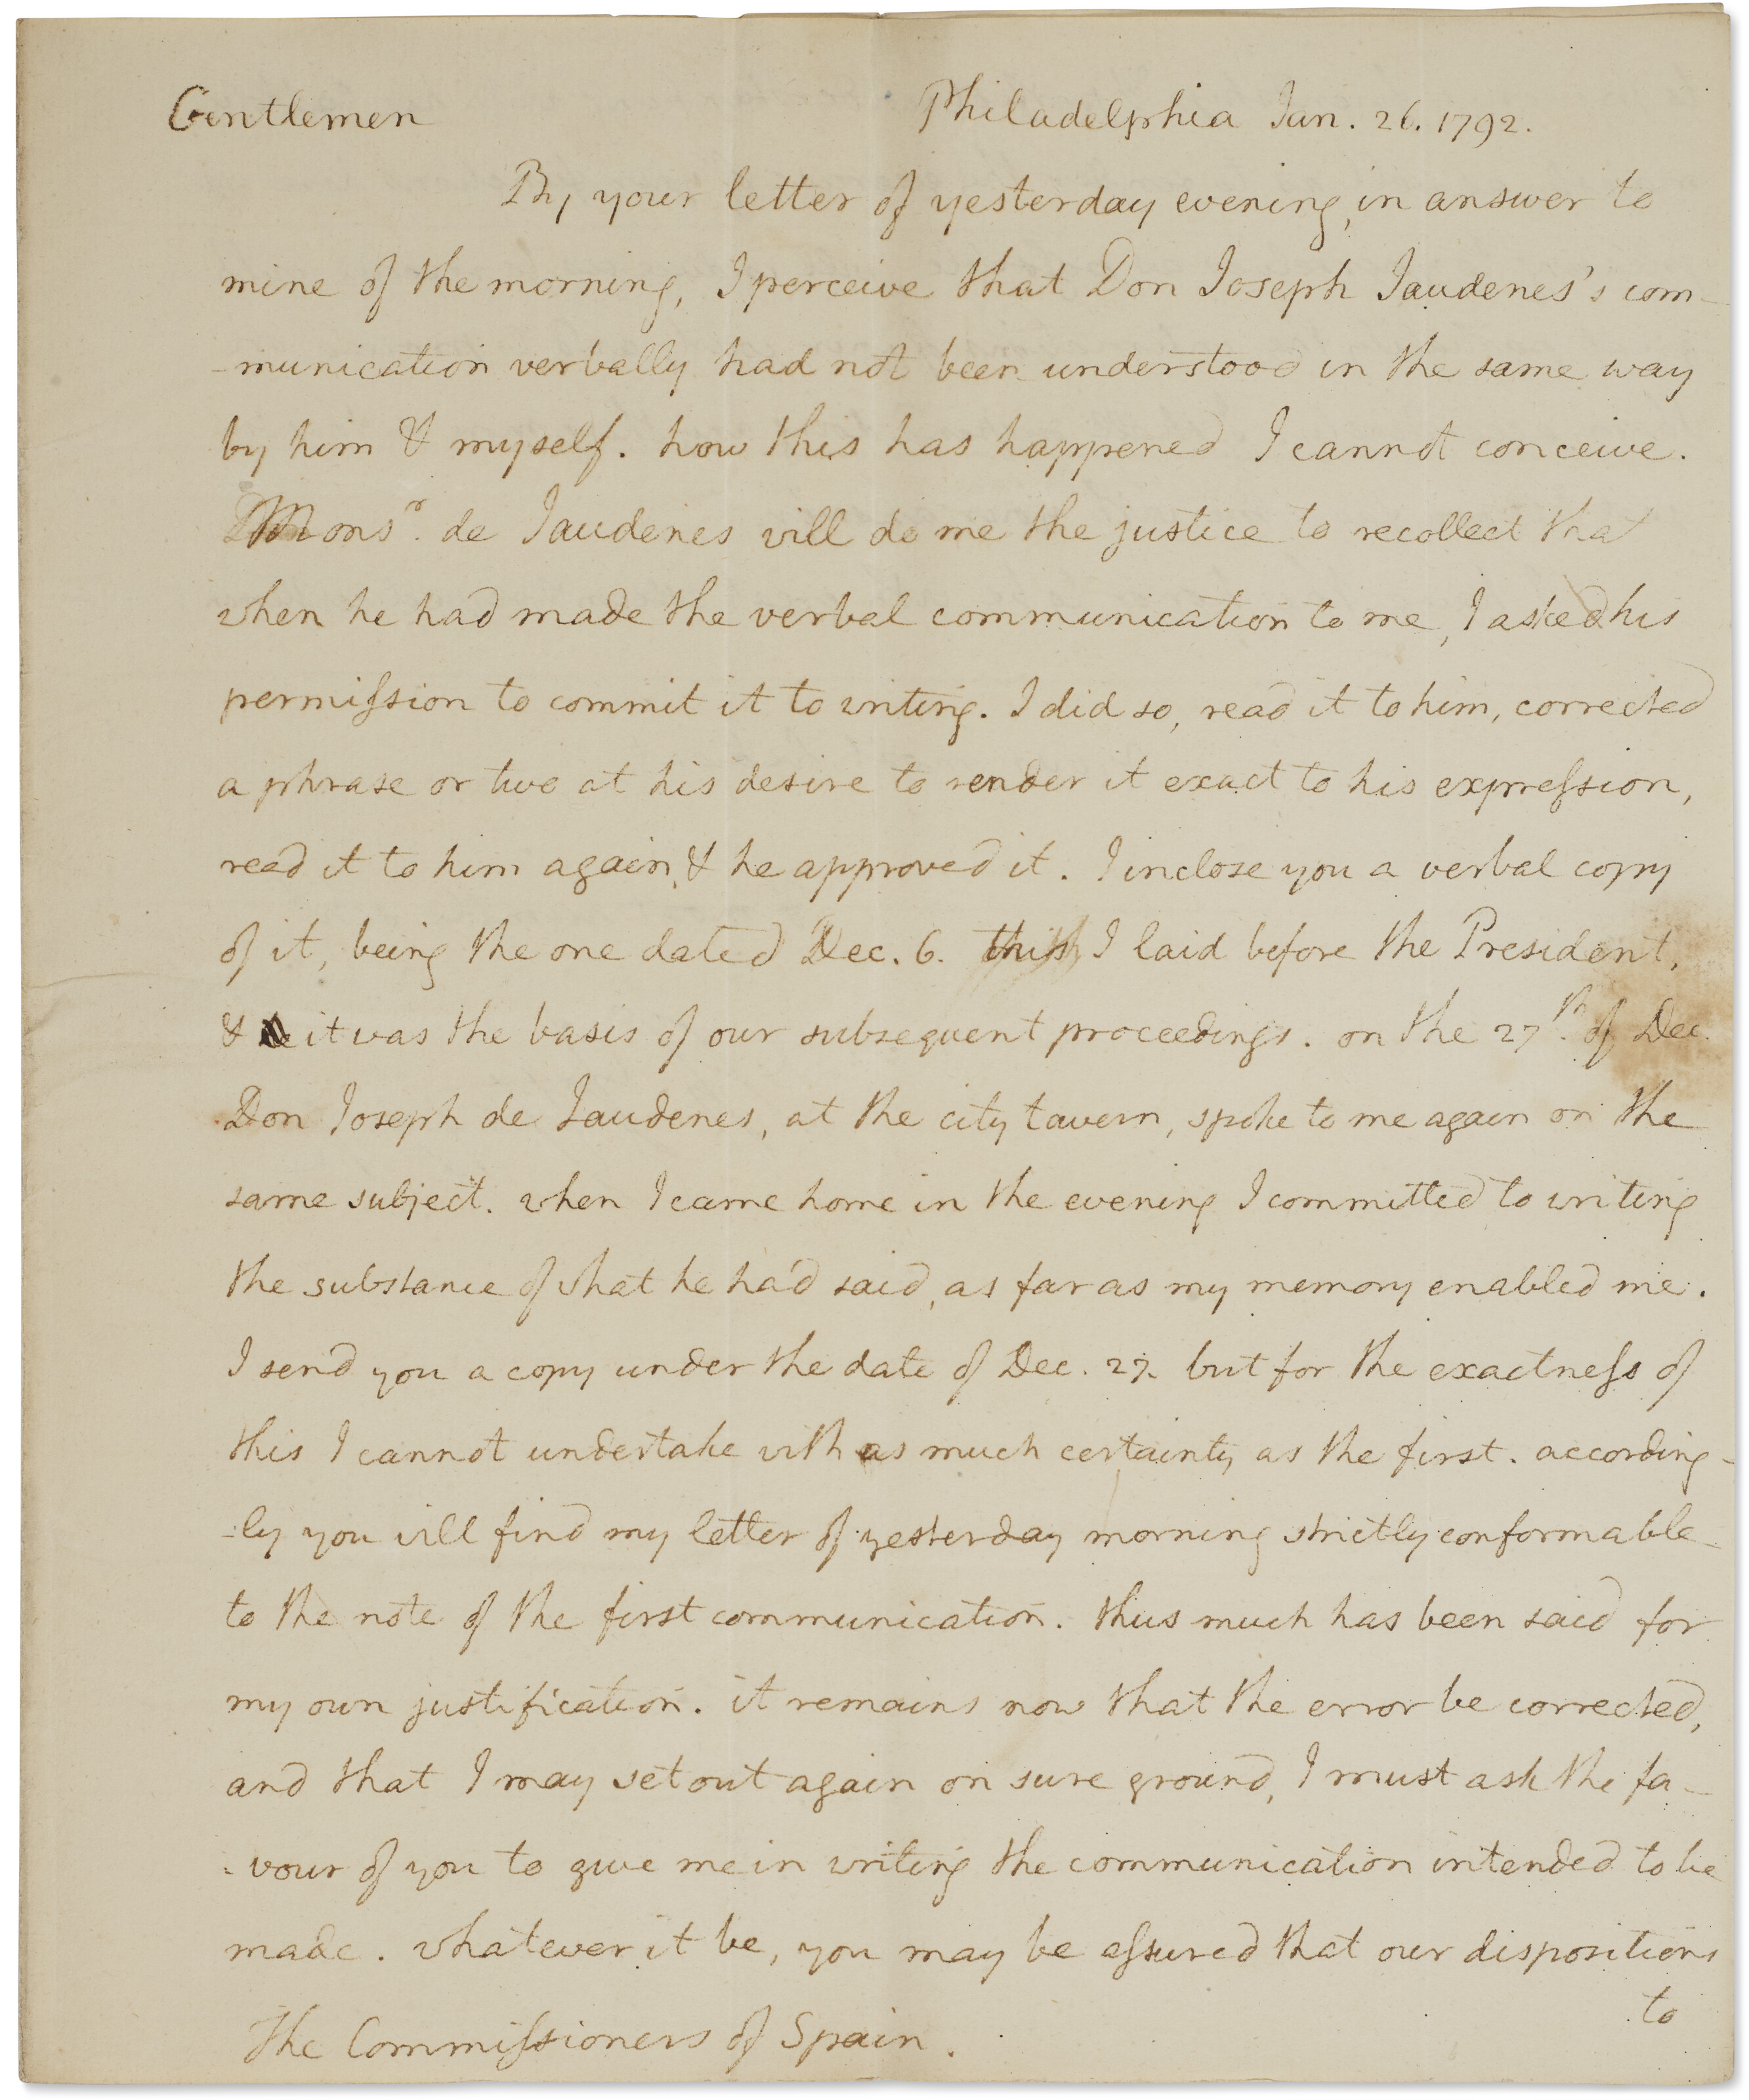 Gentlemen Philadelphia Jan. 26. 1792.
By your letter of yesterday evening, in answer to
mine of the morning, I perceive that Don Joseph Jaudenes's com-
-munication verbally had not been understood in the same way
by him & myself. how this has happened I cannot conceive.
Monsr. de Jaudenes will do me the justice to recollect that
when he had made the verbal communication to me, I asked his
permission to commit it to writing. I did so, read it to him, corrected
a phrase or two at his desire to render it exact to his expression,
read it to him again, & he approved it. I inclose you a verbal copy
of it, being the one dated Dec. 6. this I laid before the President,
& it was the basis of our subsequent proceedings. on the 27th. of Dec.
Don Joseph de Jaudenes, at the city tavern, spoke to me again on the
same subject. when I came home in the evening I committed to writing
the substance of what he had said, as far as my memory enabled me.
I send you a copy under the date of Dec. 27. but for the exactness of
this I cannot undertake with as much certainty as the first. according-
-ly you will find my letter of yesterday morning strictly conformable
to the note of the first communication. thus much has been said for
my own justification. it remains now that the error be corrected,
and that I may set out again on sure ground, I must ask the fa-
-vour of you to give me in writing the communication intended to be
made. whatever it be, you may be assured that our dispositions
to
The Commissioners of Spain.